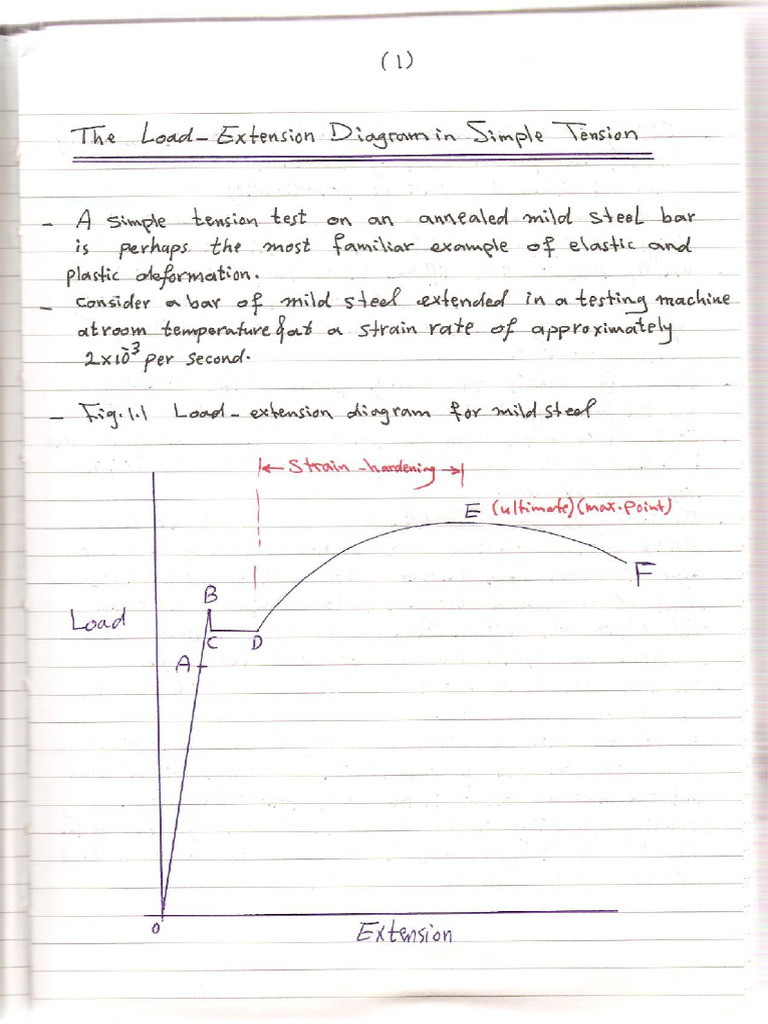 (1)
The Load-Extension Diagram in Simple Tension
- A simple tension test on an annealed mild steel bar
is perhaps the most familiar example of elastic and
plastic deformation.
- Consider a bar of mild steel extended in a testing machine
at room temperature & at a strain rate of approximately
2×10⁻³ per second.
- Fig.1.1 Load-extension diagram for mild steel
Strain-hardening
E (ultimate)(max.point)
F
B
Load
C D
A
0
Extension